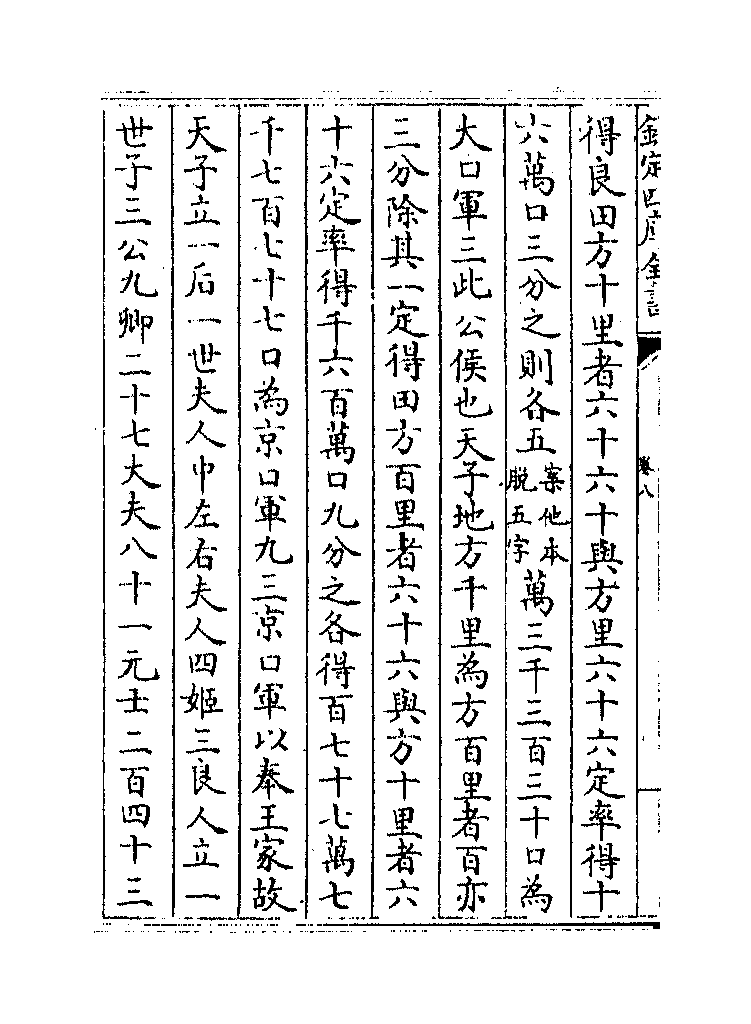 欽定四庫全書
卷八
得良田方十里者六十六十與方里六十六定率得十
六萬口三分之則各五案他本脫五字萬三千三百三十口為
大口軍三此公侯也天子地方千里為方百里者百亦
三分除其一定得田方百里者六十六與方十里者六
十六定率得千六百萬口九分之各得百七十七萬七
千七百七十七口為京口軍九三京口軍以奉王家故
天子立一后一世夫人中左右夫人四姬三良人立一
世子三公九卿二十七大夫八十一元士二百四十三